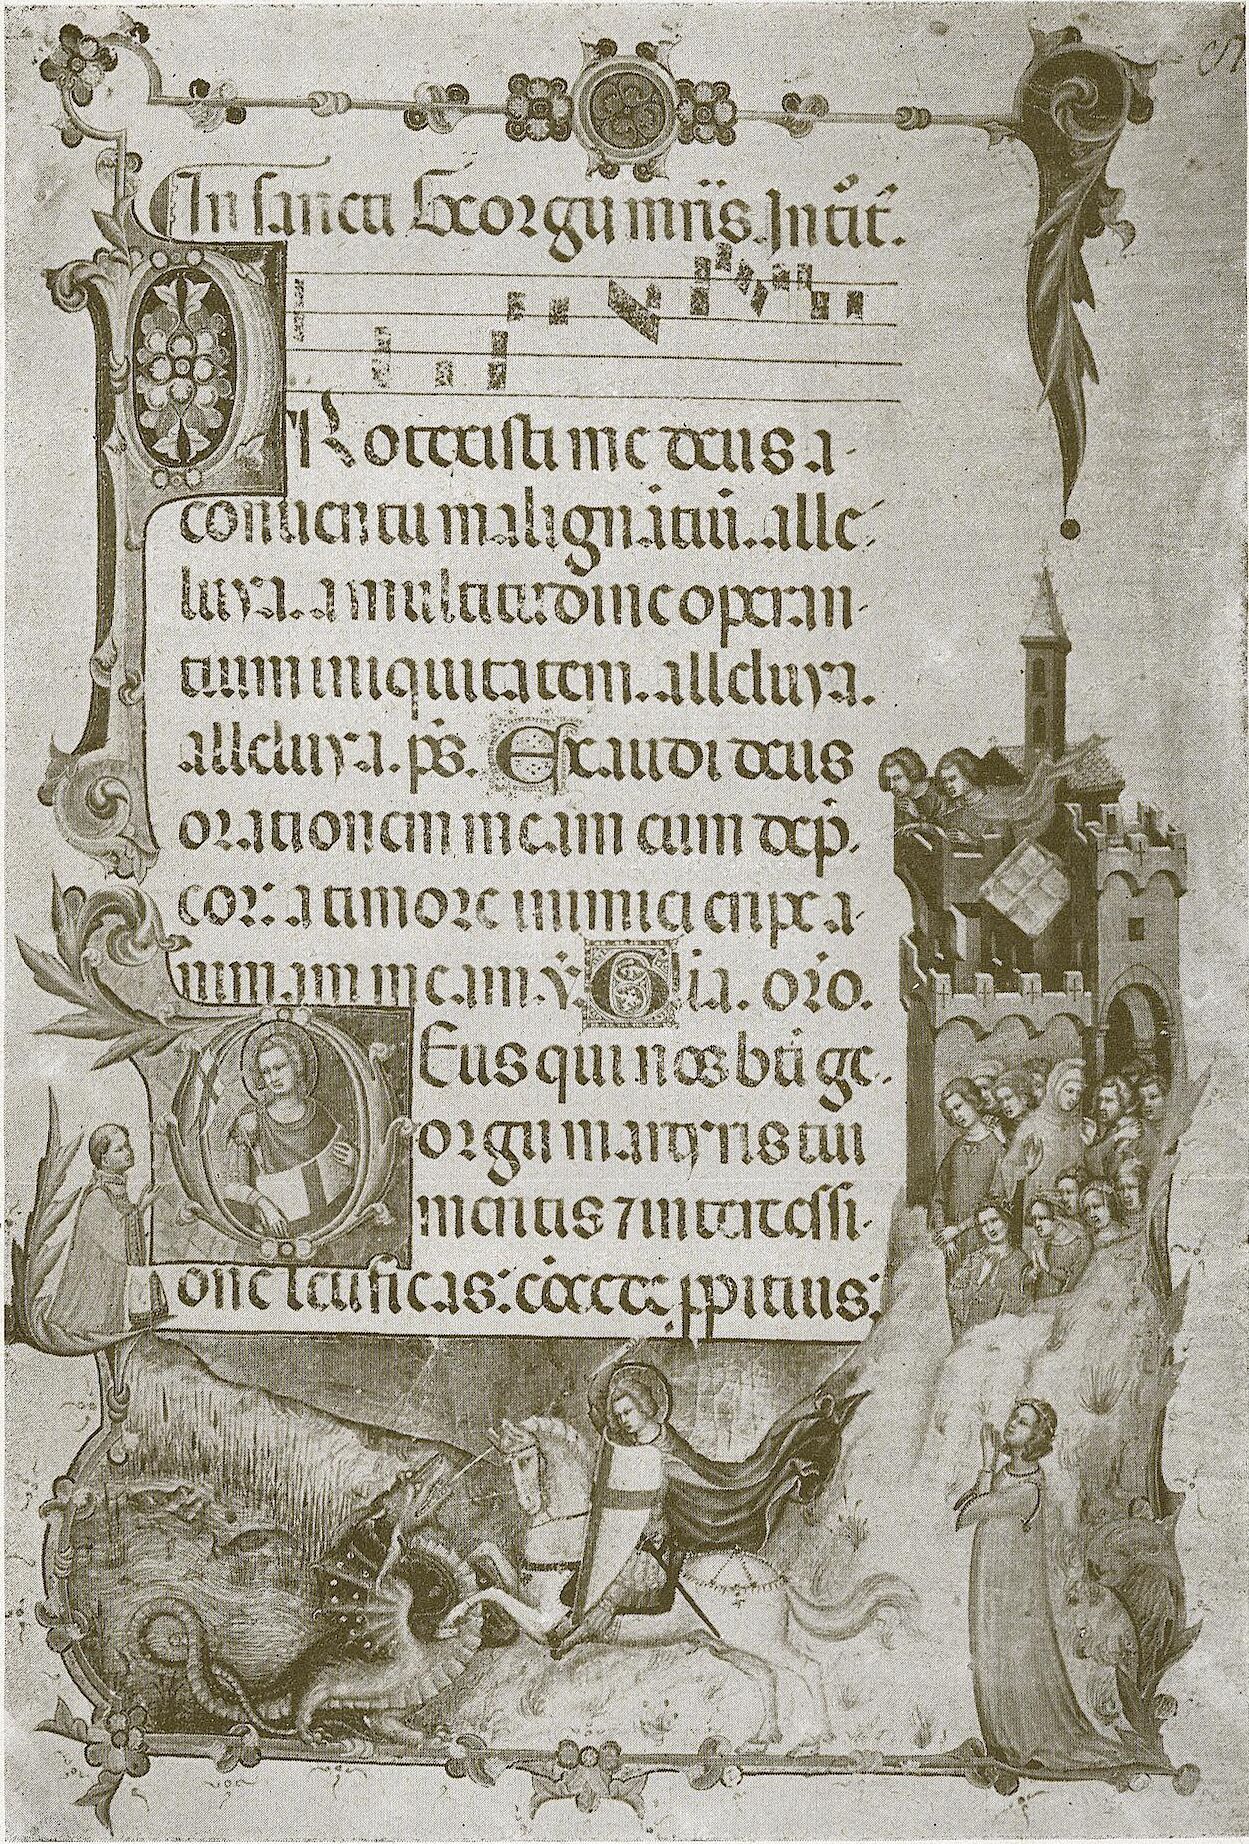 In sancti Georgii mris. Introit.
PRotexisti me deus a
conuentu malignātiū. alle
luya. a multitudine operan
tium iniquitatem. alleluya.
alleluya. ps. Exaudi deus
orationem meam cum dep̄
cor: a timore inimici eripe a
nimam meam. V̄. Glīa. or̄o.
DEus qui nos bt̄i ge
orgii martyris tui
meritis ⁊ intercessi
one letificas: cōcede ꝓpitius: